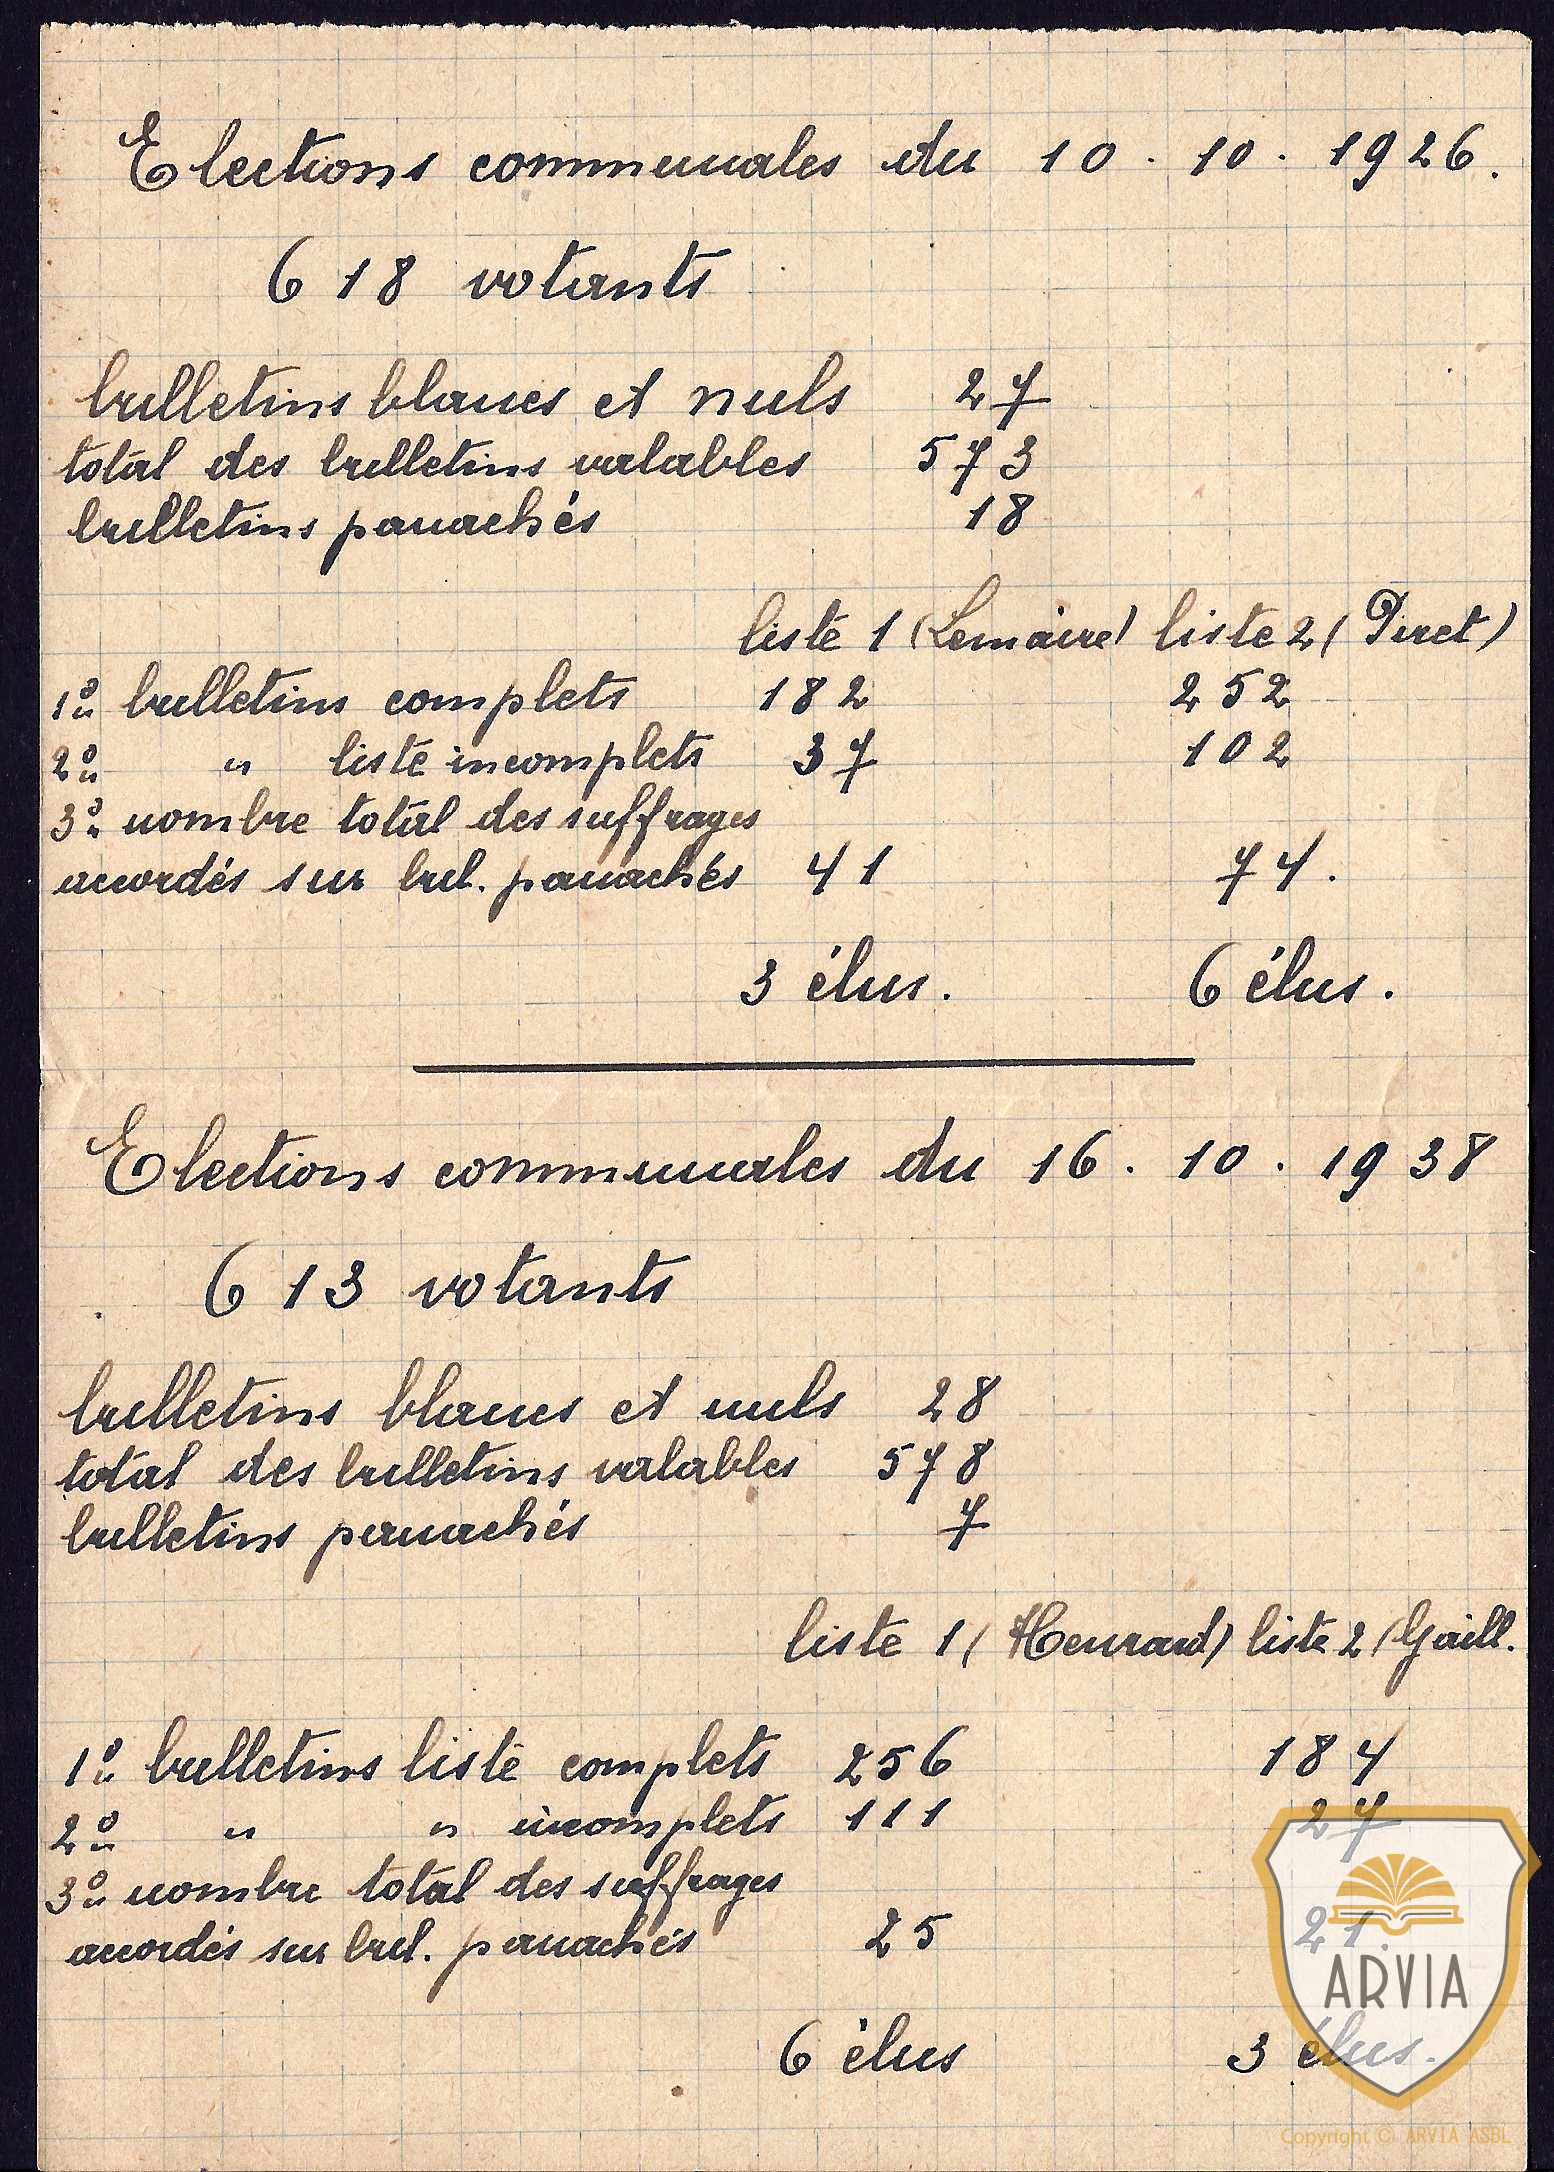 Elections communales du 10.10.1926.
618 votants
bulletins blancs et nuls 27
total des bulletins valables 573
bulletins panachés 18
liste 1 (Lemaire) liste 2 (Piret)
1° bulletins complets 182 252
2° " liste incomplets 37 102
3° nombre total des suffrages
accordés sur bul. panachés 41 74.
3 élus. 6 élus.
Elections communales du 16.10.1938
613 votants
bulletins blancs et nuls 28
total des bulletins valables 578
bulletins panachés 7
liste 1 (Henrard) liste 2 (Gaill.
1° bulletins liste complets 256 184
2° " " incomplets 111 27
3° nombre total des suffrages
accordés sur bul. panachés 25 21.
6 élus 3 élus.
ARVIA
Copyright © ARVIA ASBL